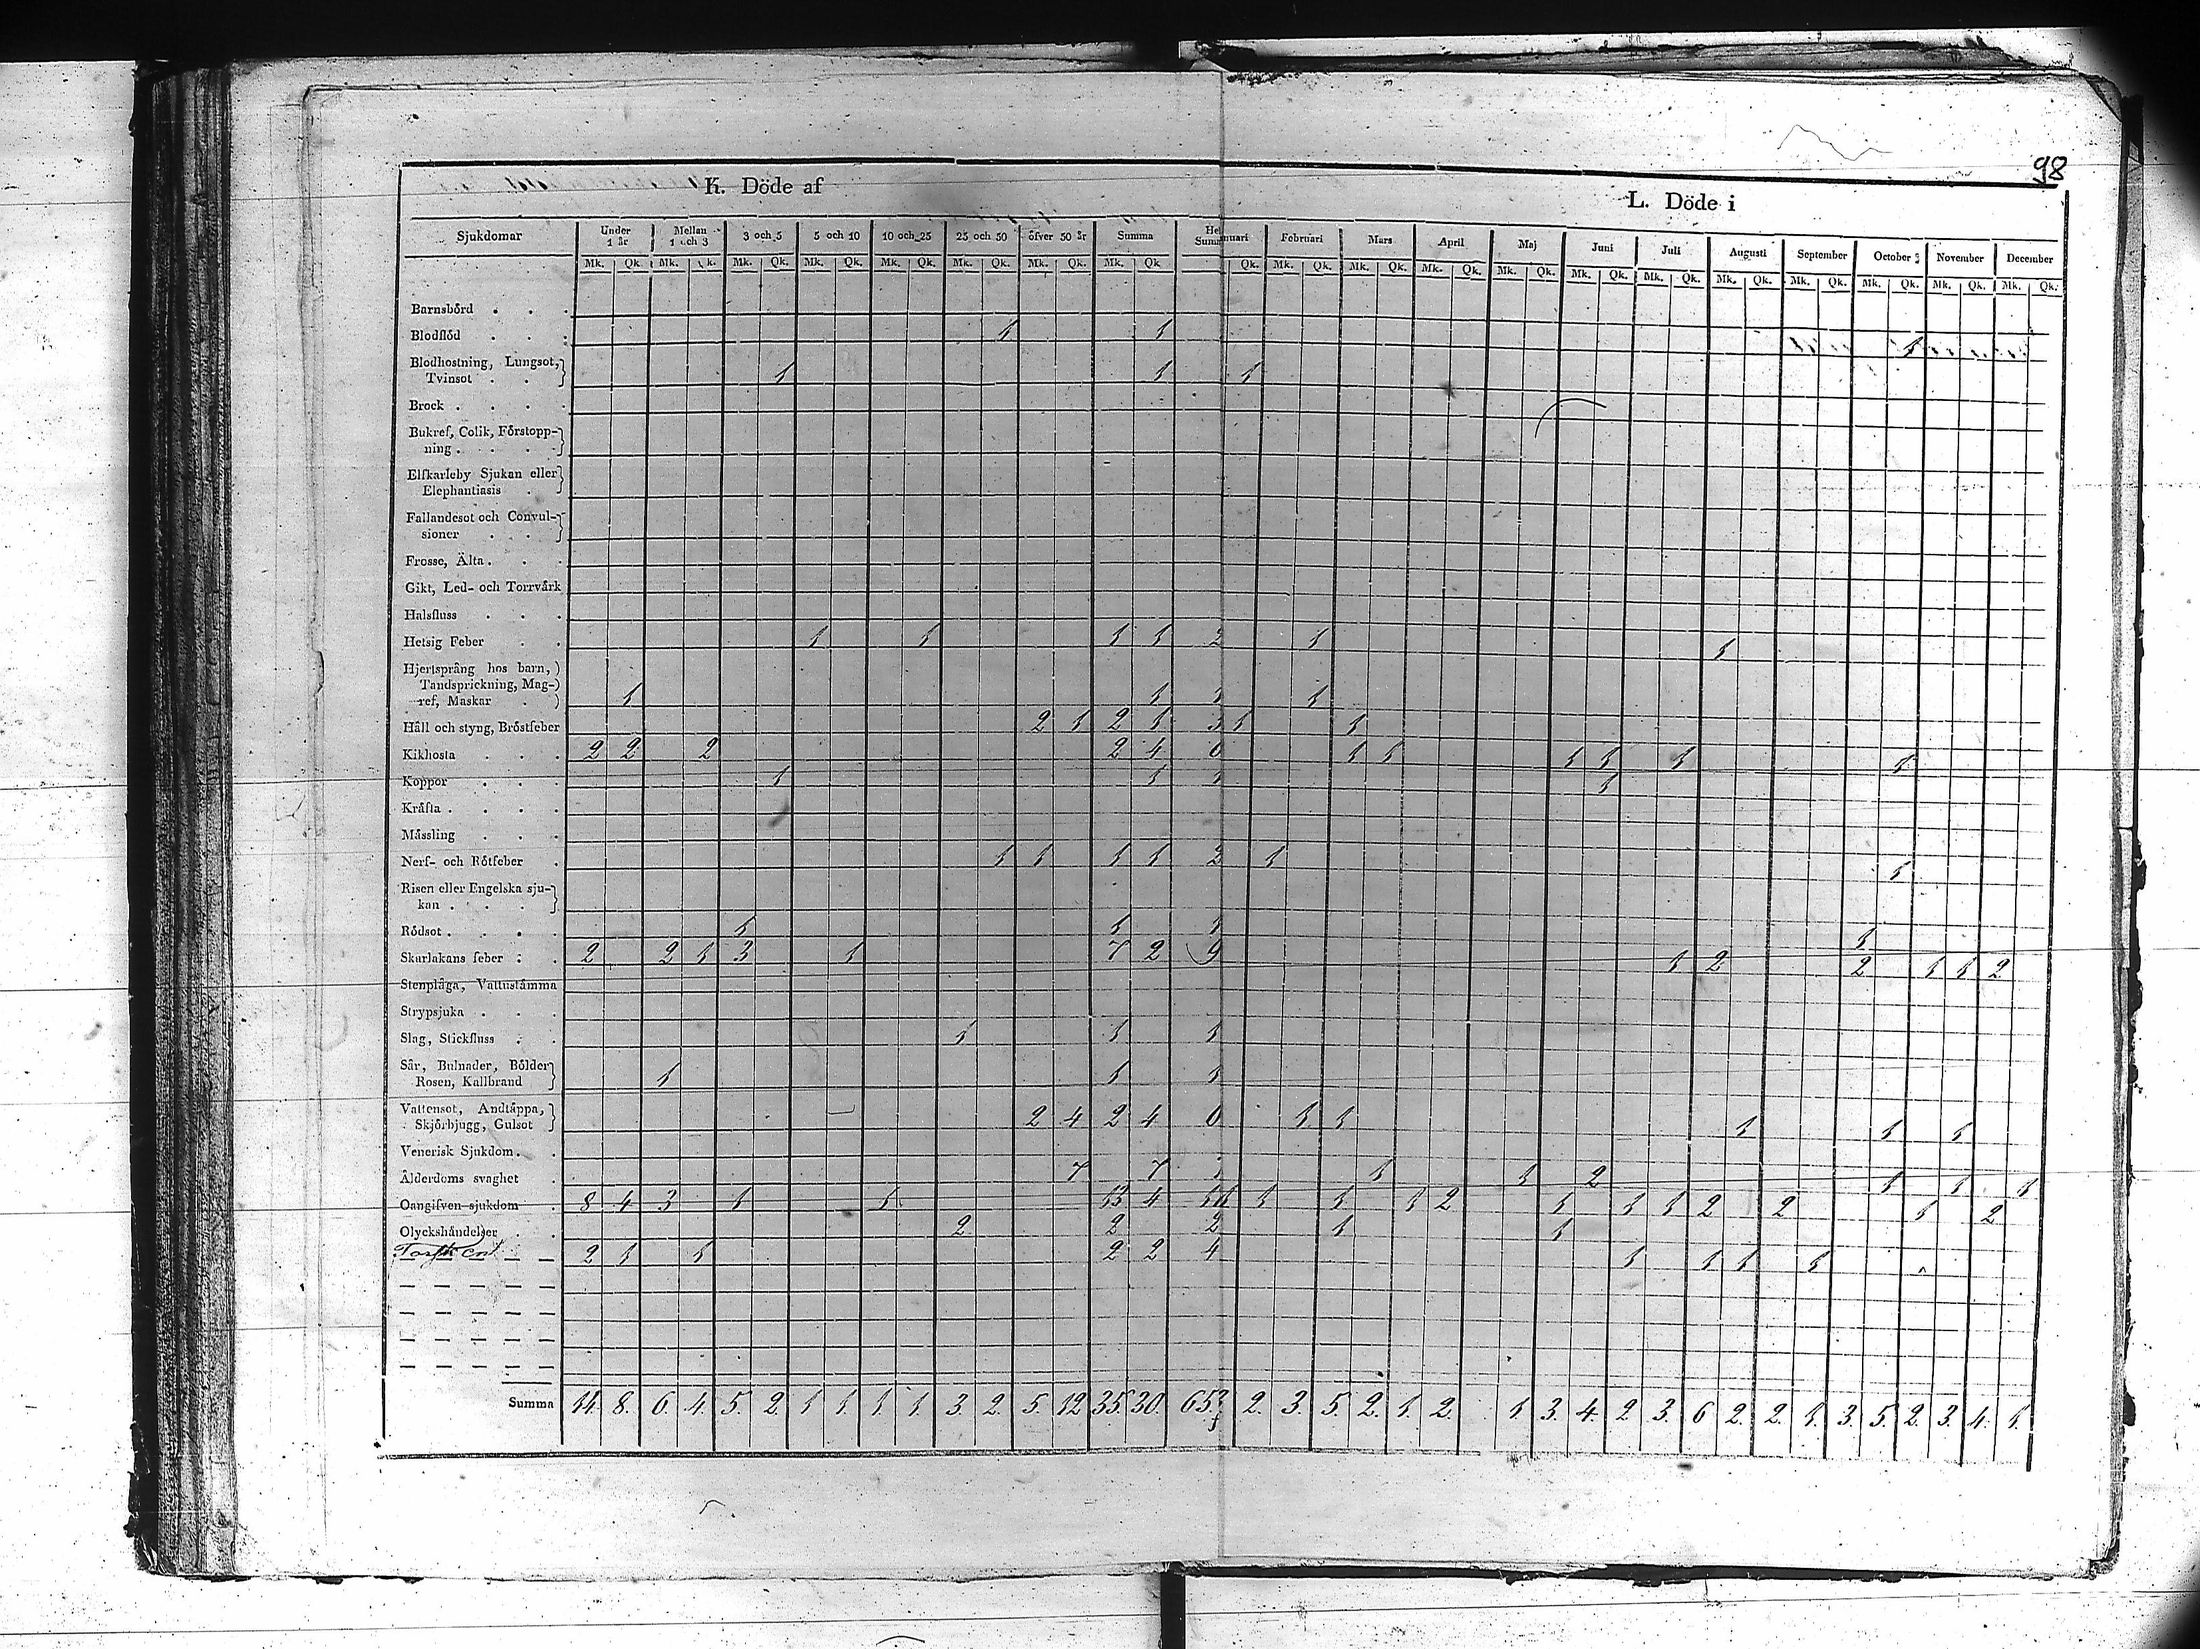 98
K. Döde af
L. Döde i
Sjukdomar Under 1 år Mellan 1 och 3 3 och 5 5 och 10 10 och 25 25 och 50 öfver 50 år Summa Februari Mars April Maj Juni Juli Augusti September October November December
Mk. Qk. Mk. Mk. Qk. Mk. Qk. Mk. Qk. Mk. Qk. Mk. Qk. Mk. Qk. Qk. Mk. Qk. Mk. Qk. Mk. Qk. Mk. Qk. Mk. Qk. Mk. Qk. Mk. Qk. Mk. Qk. Mk. Qk. Mk. Qk. Mk. Qk.
Barnsbörd . . .
Blodflöd . . . 1 1 1
Blodhostning, Lungsot,
Tvinsot . . 1 1 1
Brock . . . .
Bukref, Colik, Förstopp-
ning . . . .
Elfkarleby Sjukan eller
Elephantiasis .
Fallandesot och Convul-
sioner . . .
Frosse, Älta . . .
Gikt, Led- och Torrvärk
Halsfluss . . .
Hetsig Feber . . 1 1 1 1 2 1 1
Hjertsprång hos barn,
Tandsprickning, Mag-
ref, Maskar . 1 1 1 1
Håll och styng, Bröstfeber 2 1 2 1 3 1 1
Kikhosta . . . 2 2 2 2 4 6 1 1 1 1 1 1
Koppor . . . 1 1 1 1
Kräfta . . . .
Mässling . . .
Nerf- och Rötfeber . 1 1 1 1 2 1 1
Risen eller Engelska sju-
kan . . . .
Rödsot . . . . 1 1 1 1
Skarlakans feber . . 2 2 1 3 1 7 2 9 1 2 2 1 1 2
Stenplåga, Vattustämma
Strypsjuka . . .
Slag, Stickfluss . . 1 1 1
Sår, Bulnader, Bölder
Rosen, Kallbrand 1 1 1
Vattensot, Andtäppa,
Skjörbjugg, Gulsot 2 4 2 4 6 1 1 1 1 1
Venerisk Sjukdom . .
Ålderdoms svaghet . 7 7 1 1 2 1 1 1
Oangifven sjukdom . 8 4 3 1 1 13 4 1 1 1 2 1 1 1 2 2 1 2
Olyckshändelser . . 2 2 2 1 1
Torsken 2 1 1 2 2 4 1 1 1 1
Summa 14. 8. 6. 4. 5. 2. 1 1 1. 1. 3. 2. 5. 12 35. 30. 65 2. 3. 5. 2. 1. 2. 1 3. 4. 2 3. 6 2. 2. 1. 3. 5. 2. 3. 4. 1.